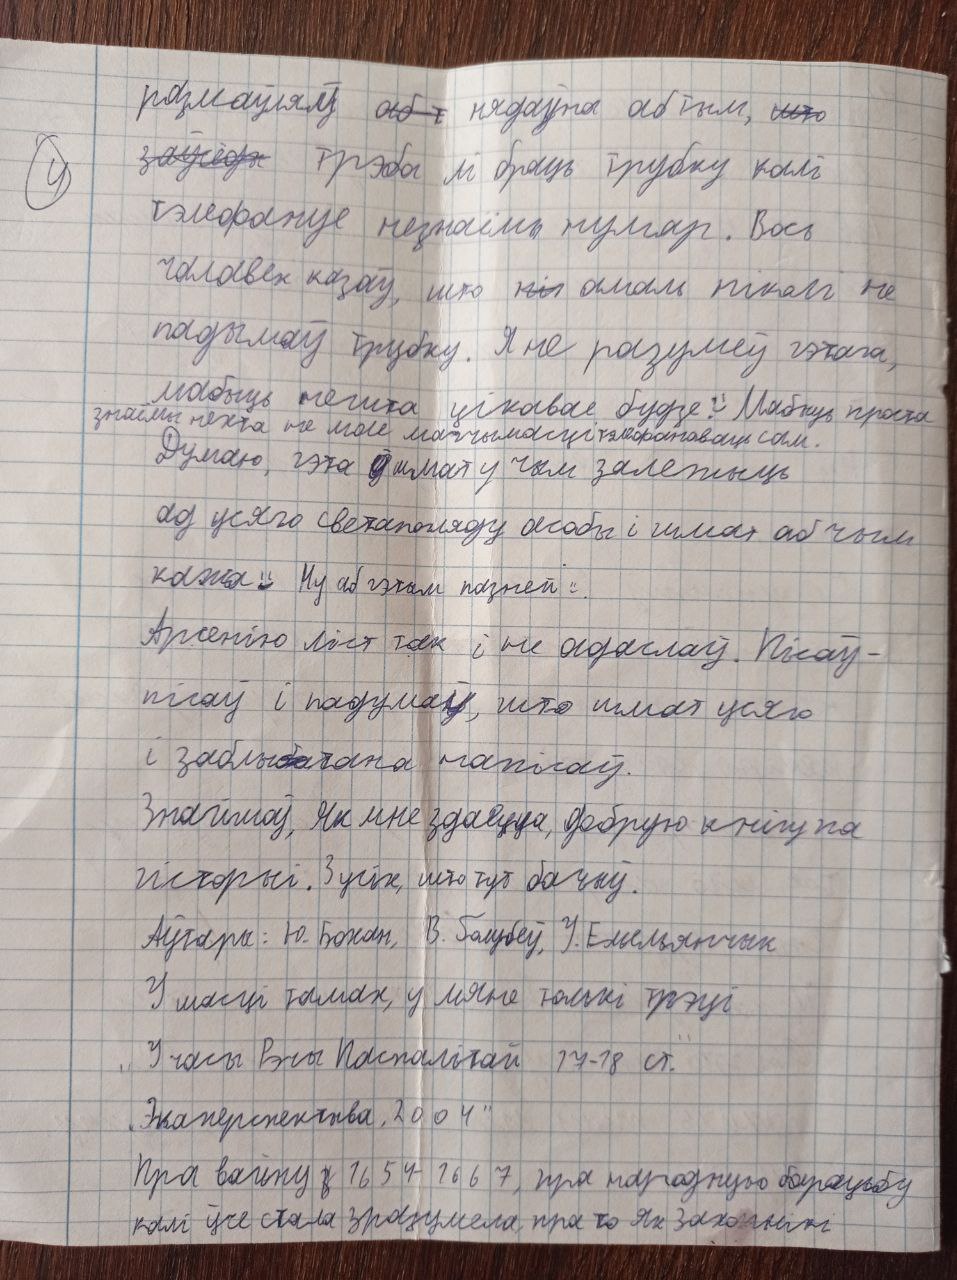 размаўлялі аб т нядаўна аб тым, што
4
заўсёды трэба лі браць трубку калі
тэлефануе незнаёмы нумар. Вось
чалавек казаў, што ні амаль ніколі не
падымаў трубку. Я не разумеў гэтага,
мабыць нешта цікавае будзе :) Мабыць проста
знаёмы нехта не мае магчымасці тэлефанаваць сам.
Думаю, гэта шмат у чым залежыць
ад усяго светапогляду асобы і шмат аб чым
кажа :) Ну аб гэтым пазней :).
Арсенію ліст так і не адаслаў. Пісаў-
пісаў і падумаў, што шмат усяго
і заблытана напісаў.
Знайшоў, як мне здаецца, добрую кнігу па
гісторыі. З усіх, што тут бачыў.
Аўтары: Ю. Бохан, В. Голубеў, У. Емельянчык
У шасці тамах, у мяне толькі трэці
"У часы Рэчы Паспалітай 17-18 ст."
"Экаперспектыва, 2004"
Пра вайну 1654-1667, пра народную барацьбу
калі ўже стала зразумела пра то як захопнікі